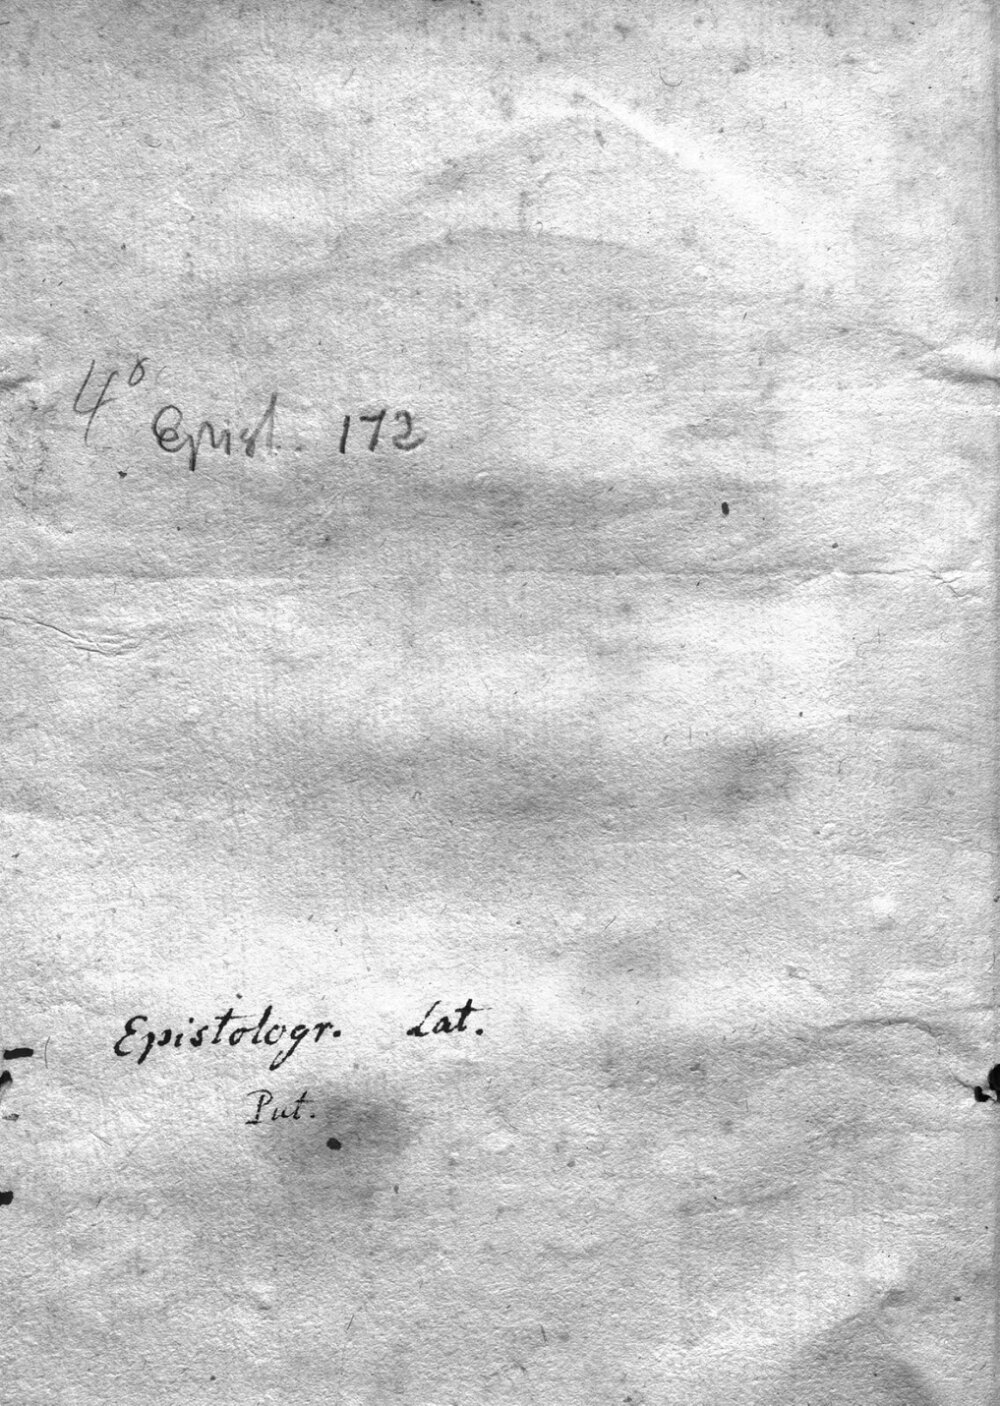 4° Epist. 172
Epistologr. Lat.
Put.